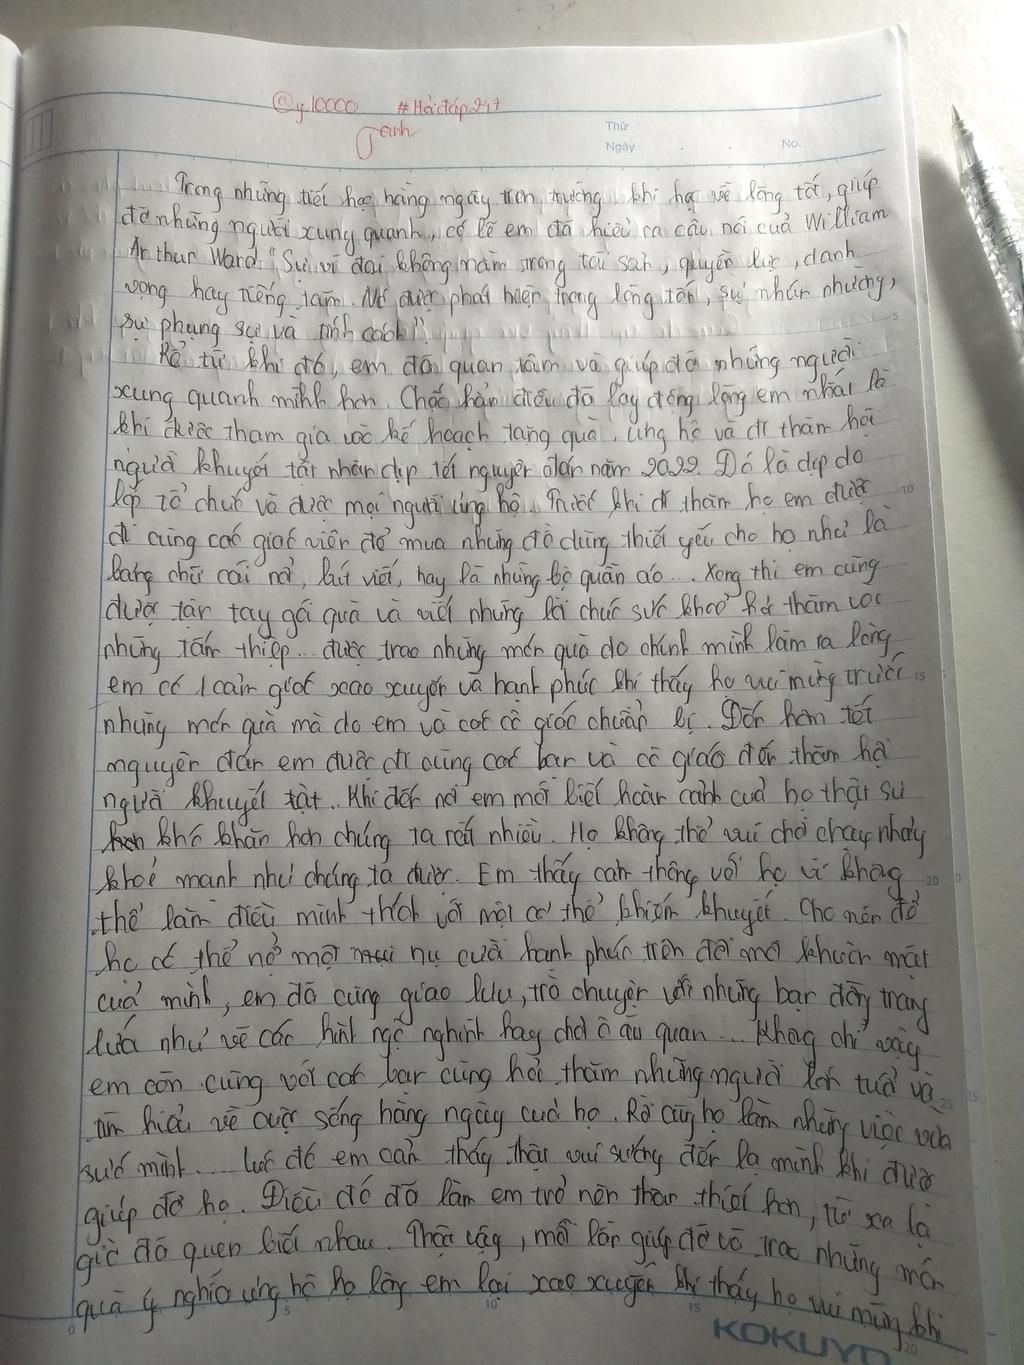 @y10000 #Hỏiđáp247
anh
Thứ
Ngày . . No.
Trong những tiết học hàng ngày trên trường, khi học về lòng tốt, giúp
đỡ những người xung quanh, có lẽ em đã hiểu ra câu nói của William
Arthur Ward "Sự vĩ đại không nằm trong tài sản, quyền lực, danh
vọng hay tiếng tăm. Nó được phát hiện trong lòng tốt, sự nhún nhường,
sự phụng sự và tính cách".
5
Kể từ khi đó, em đã quan tâm và giúp đỡ những người
xung quanh mình hơn. Chắc hẳn điều đã lay động lòng em nhất là
khi được tham gia vào kế hoạch tặng quà, ủng hộ và đi thăm hỏi
người khuyết tật nhân dịp tết nguyên đán năm 2022. Đó là dịp do
lớp tổ chức và được mọi người ủng hộ. Trước khi đi thăm họ em được
10
đi cùng các giáo viên để mua những đồ dùng thiết yếu cho họ như là
bảng chữ cái nổi, bút viết, hay là những bộ quần áo.... Xong thì em cũng
được tận tay gói quà và viết những lời chúc sức khoẻ hỏi thăm vào
những tấm thiệp... được trao những món quà do chính mình làm ra lòng
em có 1 cảm giác xao xuyến và hạnh phúc khi thấy họ vui mừng trước
15
những món quà mà do em và các cô giáo chuẩn bị. Đến hôm tết
nguyên đán em được đi cùng các bạn và cô giáo đến thăm hỏi
người khuyết tật. Khi đến nơi em mới biết hoàn cảnh của họ thật sự
khó khăn hơn chúng ta rất nhiều. Họ không thể vui chơi chạy nhảy
khoẻ mạnh như chúng ta được. Em thấy cảm thông với họ vì không
20
thể làm điều mình thích với một cơ thể khiếm khuyết. Cho nên để
họ có thể nở một nụ cười hạnh phúc trên đôi môi khuôn mặt
của mình, em đã cùng giao lưu, trò chuyện với những bạn đồng trang
lứa như vẽ các hình ngộ nghĩnh hay chơi ô ăn quan... Không chỉ vậy
em còn cùng với các bạn cùng hỏi thăm những người lớn tuổi và
25
tìm hiểu về cuộc sống hàng ngày của họ. Rồi cùng họ làm những việc vừa
sức mình.... Lúc đó em cảm thấy thật vui sướng đến lạ mình khi được
giúp đỡ họ. Điều đó đã làm em trở nên thân thiết hơn, từ xa lạ
giờ đã quen biết nhau. Thật vậy, mỗi lần giúp đỡ và trao những món
quà ý nghĩa ủng hộ họ lòng em lại xao xuyến khi thấy họ vui mừng khi
0 5 10 15 20
KOKUYO